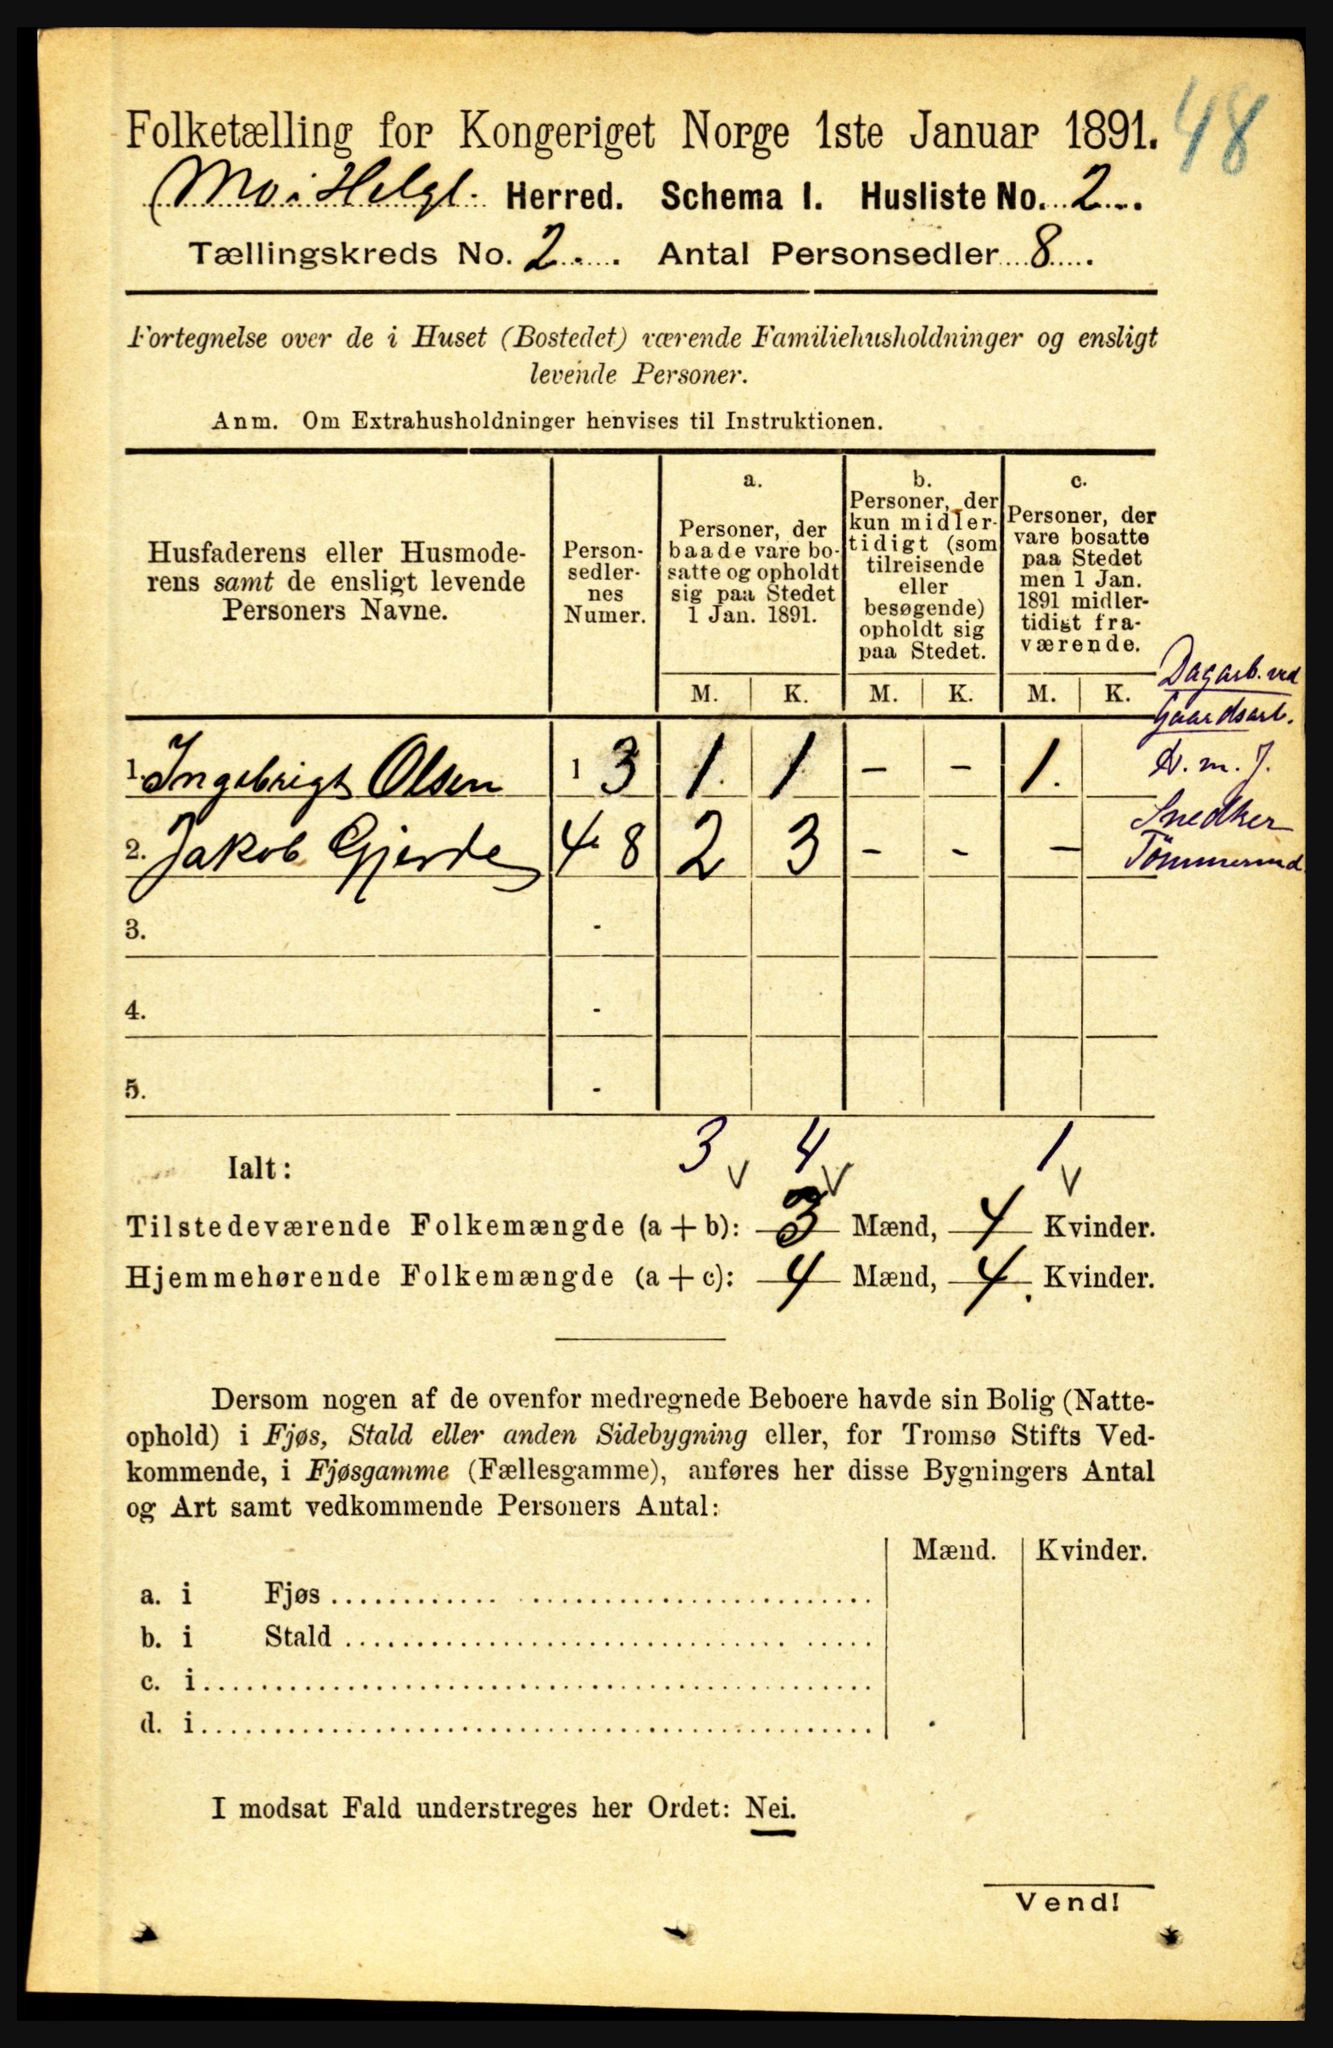 48
Folketælling for Kongeriget Norge 1ste Januar 1891.
Mo i Helgl. Herred. Schema I. Husliste No. 2
Tællingskreds No. 2. Antal Personsedler 8
Fortegnelse over de i Huset (Bostedet) værende Familiehusholdninger og ensligt
levende Personer.
Anm. Om Extrahusholdninger henvises til Instruktionen.
Husfaderens eller Husmode-
rens samt de ensligt levende
Personers Navne.
Person-
sedler-
nes
Numer.
a.
Personer, der
baade vare bo-
satte og opholdt
sig paa Stedet
1 Jan. 1891.
b.
Personer, der
kun midler-
tidigt (som
tilreisende
eller
besøgende)
opholdt sig
paa Stedet.
c.
Personer, der
vare bosatte
paa Stedet
men 1 Jan.
1891 midler-
tidigt fra-
værende.
M. K. M. K. M. K.
Dagarb. ved
Gaardsarb.
1. Ingebrigt Olsen 1 3 1. 1 - - 1.
m. J.
2. Jakob Gjerde 4. 8 2 3 - - -
Snedker
3. -
4. -
5. -
Ialt: 3 4 1
Tilstedeværende Folkemængde (a + b): 3 Mænd, 4 Kvinder.
Hjemmehørende Folkemængde (a + c): 4 Mænd, 4. Kvinder.
Dersom nogen af de ovenfor medregnede Beboere havde sin Bolig (Natte-
ophold) i Fjøs, Stald eller anden Sidebygning eller, for Tromsø Stifts Ved-
kommende, i Fjøsgamme (Fællesgamme), anføres her disse Bygningers Antal
og Art samt vedkommende Personers Antal:
Mænd. Kvinder.
a. i Fjøs
b. i Stald
c. i
d. i
I modsat Fald understreges her Ordet: Nei.
Vend!